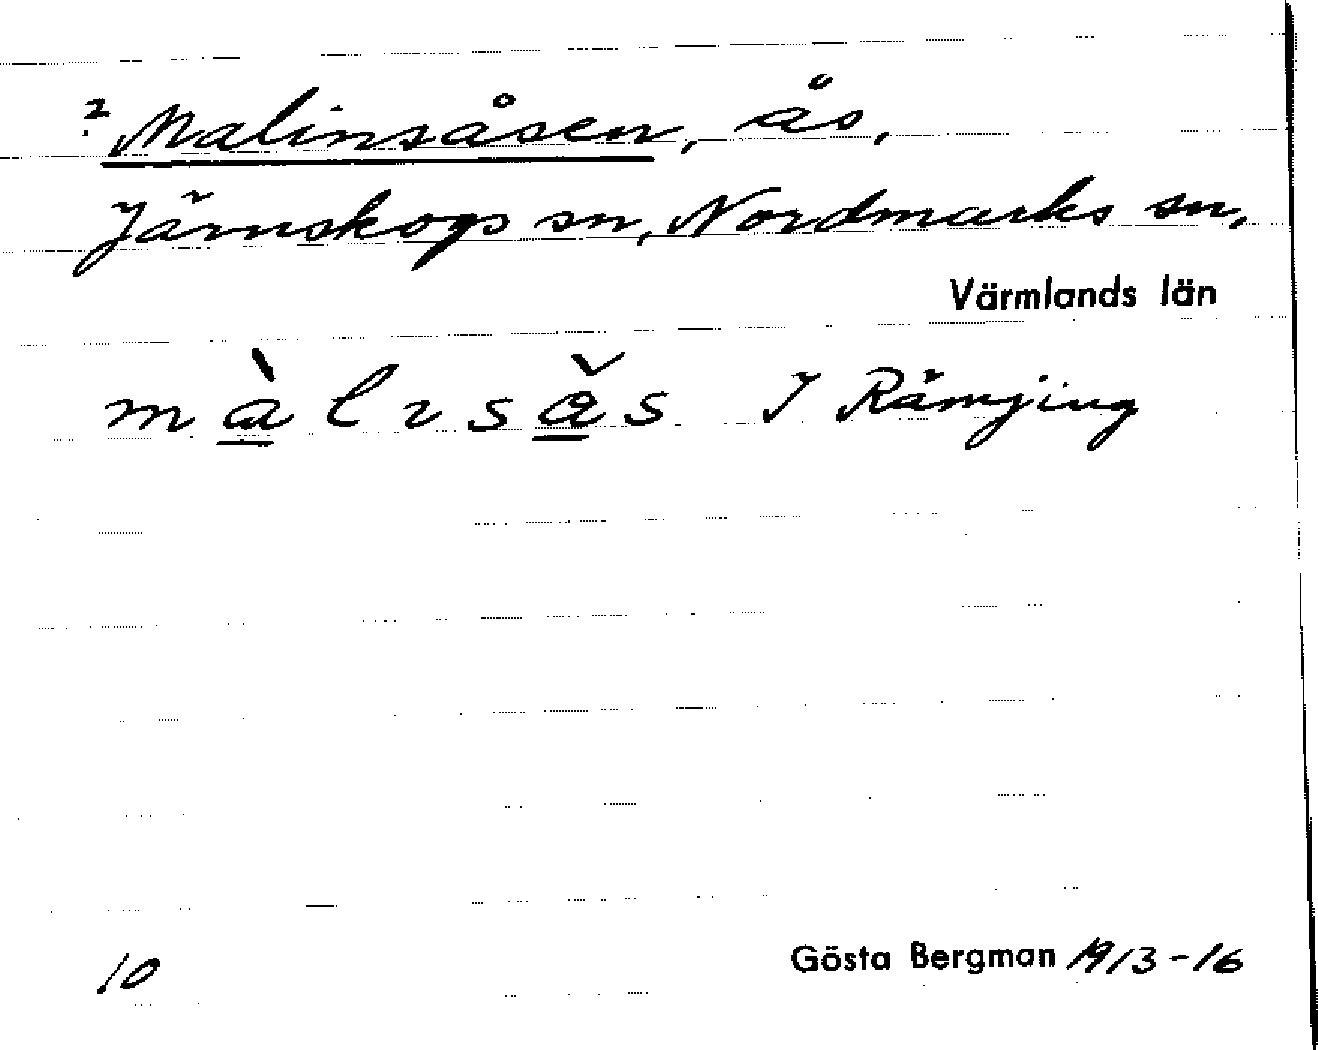 ? Malinsåsen, ås,
Järnskogs sn, Nordmarks sn,
Värmlands län
màlısǎs I Rämjing
10 Gösta Bergman 1913-16